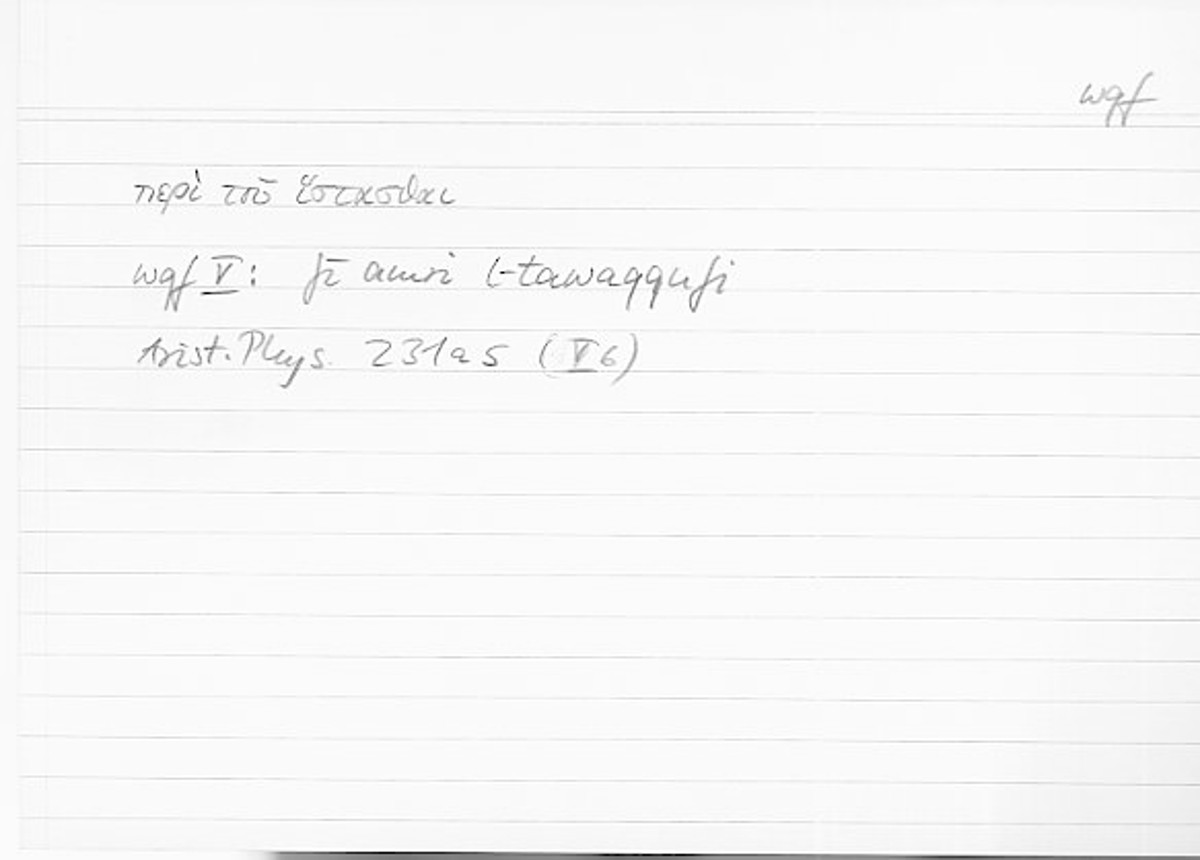 wqf
περὶ τοῦ ἵστασθαι
wqf V: fī amri l-tawaqqufi
Arist. Phys. 231a5 (V6)